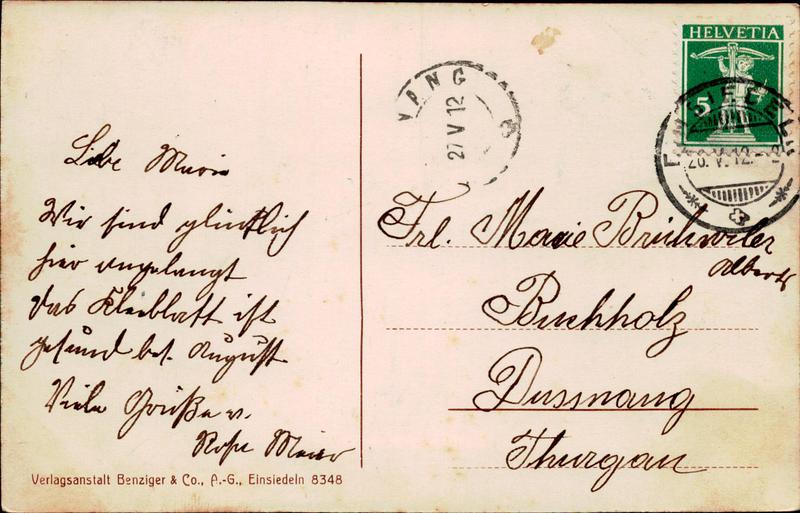 Liebe Marie
Wir sind glücklich
hier angelangt
das Kleeblatt ist
gesund bes. August.
Viele Grüße v.
Rosa Meier
Verlagsanstalt Benziger & Co., A.-G., Einsiedeln 8348
NANG
27 V 12
HELVETIA
5
EINSIEDELN
26. V. 12.
Frl. Marie Brühwiler
Alberts
Buchholz
Dussnang
Thurgau